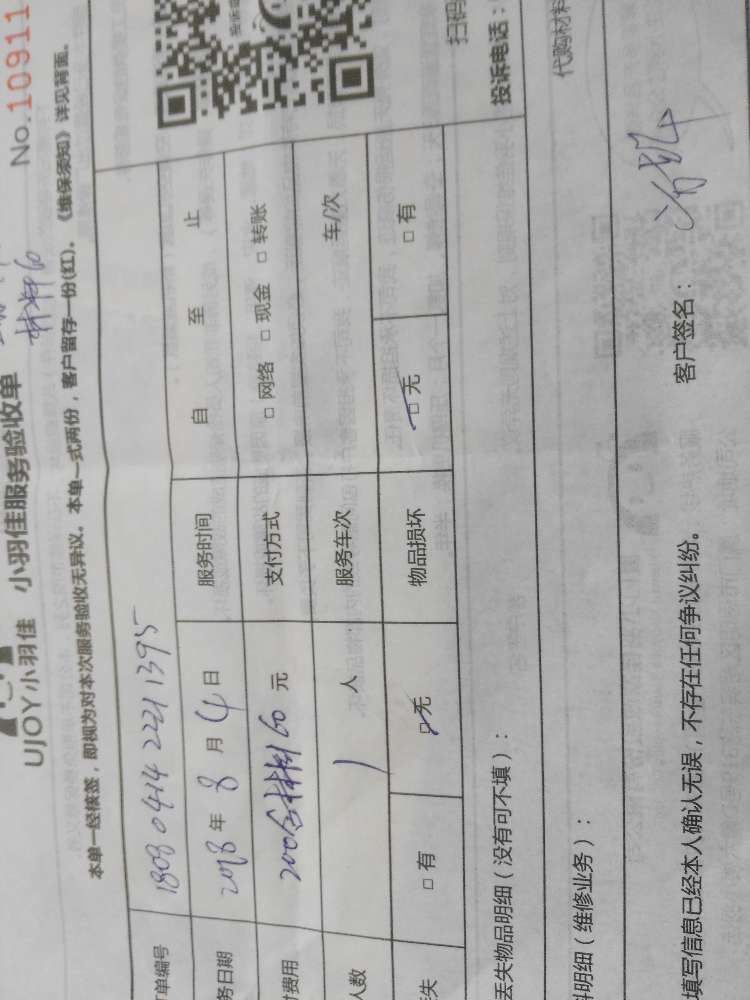 UJOY小羽佳 小羽佳服务验收单 No.10911
材料60
本单一经核签，即视为对本次服务验收无异议。本单一式两份，客户留存一份(红)。《维保须知》详见背面。
单编号 1808 0414 2221 1395
务日期 2018 年 8 月 4 日 服务时间 自 至 止
费用 200含材料60 元 支付方式 □ 网络 □ 现金 □ 转账
人数 1 人 服务车次 车/次
失 □ 有 □ 无 物品损坏 □ 无 □ 有
扫码
投诉电话：
丢失物品明细（没有可不填）：
代购材料
料明细（维修业务）：
客户签名：
填写信息已经本人确认无误，不存在任何争议纠纷。